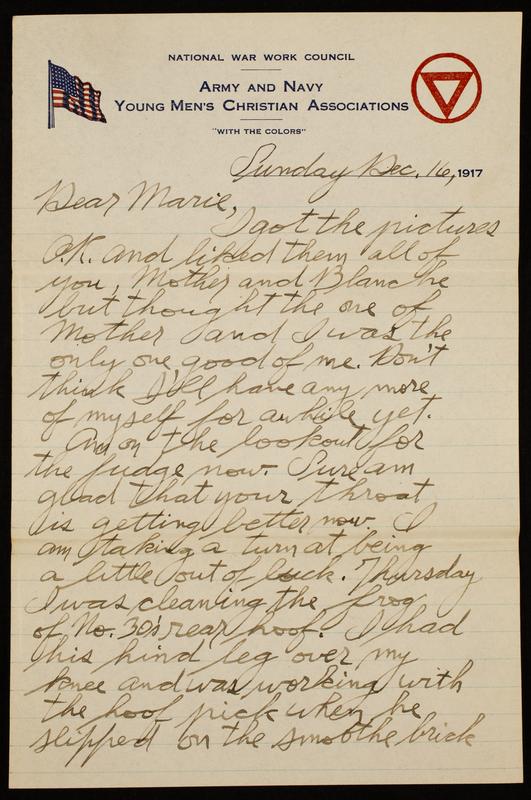 NATIONAL WAR WORK COUNCIL
ARMY AND NAVY
YOUNG MEN'S CHRISTIAN ASSOCIATIONS
"WITH THE COLORS"
Sunday Dec. 16, 1917
Dear Marie,
I got the pictures
O.K. and liked them all of
you, Mother and Blanche
but thought the one of
Mother and I was the
only one good of me. Don't
think I'll have any more
of myself for awhile yet.
Am on the lookout for
the fudge now. Sure am
glad that your throat
is getting better now. I
am taking a turn at being
a little out of luck. Thursday
I was cleaning the frog
of No. 30's rear hoof. I had
his hind leg over my
knee and was working with
the hoof pick when he
slipped on the smoothe brick